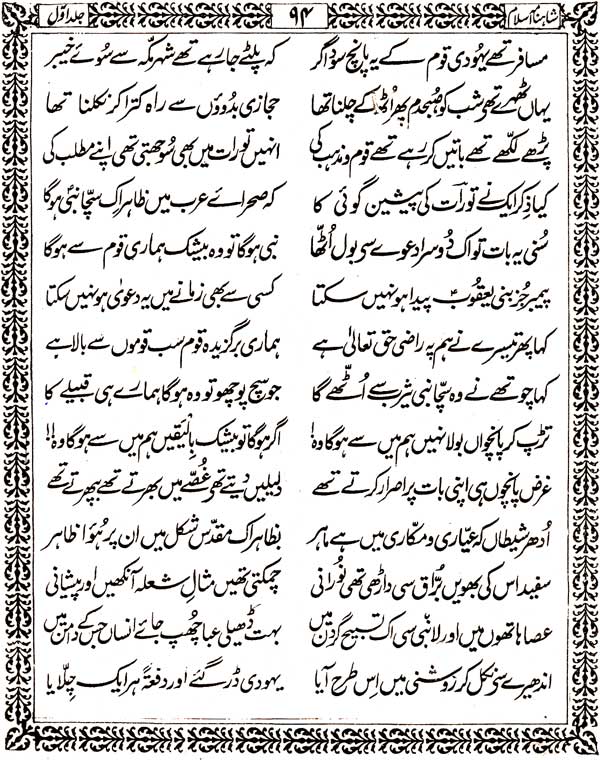 شاہنامۂ اسلام ۹۴ جلد اوّل
مسافر تھے یہودی قوم کے یہ پانچ سوداگر کہ پلٹے جا رہے تھے شہر مکّہ سے سُوئے خیبر
یہاں ٹھہرے تھے شب کو صُبحدم پھر اُٹھ کے چلنا تھا حجازی بدّوؤں سے راہ کترا کر نکلنا تھا
پڑھے لکھّے تھے باتیں کر رہے تھے قوم و مذہب کی انہیں تورات میں بھی سُوجھتی تھی اپنے مطلب کی
کیا ذِکر ایک نے تورات کی پیشین گوئی کا کہ صحرائے عرب میں ظاہر اک سچّا نبی ہوگا
سُنی یہ بات تو اک دُوسرا دعوے سی بول اُٹھّا نبی ہوگا تو وہ بیشک ہماری قوم سے ہوگا
پیمبر جُز بنی یعقوبؑ پیدا ہو نہیں سکتا کسی سے بھی زمانے میں یہ دعویٰ ہو نہیں سکتا
کہا پھر تیسرے نے ہم پہ راضی حق تعالیٰ ہے ہماری برگزیدہ قوم سب قوموں سے بالا ہے
کہا چوتھے نے وہ سچّا نبی یثرب سے اُٹھّے گا جو سچ پوچھو تو وہ ہوگا ہمارے ہی قبیلے کا
تڑپ کر پانچواں بولا نہیں ہم میں سے ہوگا وہ! اگر ہوگا تو بیشک بالیقیں ہم میں سے ہوگا وہ!!
غرض پانچوں ہی اپنی بات پر اصرار کرتے تھے دلیلیں دیتے تھے غُصّے میں بھرتے تھے بپھرتے تھے
اُدھر شیطاں کہ عیّاری و مکّاری میں ہے ماہر بظاہر اک مقدّس شکل میں ان پر ہُوا ظاہر
سفید اس کی بھویں برُّاق سی داڑھی تھی نُورانی چمکتی تھیں مثالِ شعلہ آنکھیں اور پیشانی
عصا ہاتھوں میں اور لانبی سی اک تسبیح گردن میں بہت ڈھیلی عبا چُھپ جائے انساں جس کے دامن میں
اندھیرے سے نکل کر روشنی میں اِس طرح آیا یہودی ڈر گئے اور دفعتہً ہر ایک چِلّایا